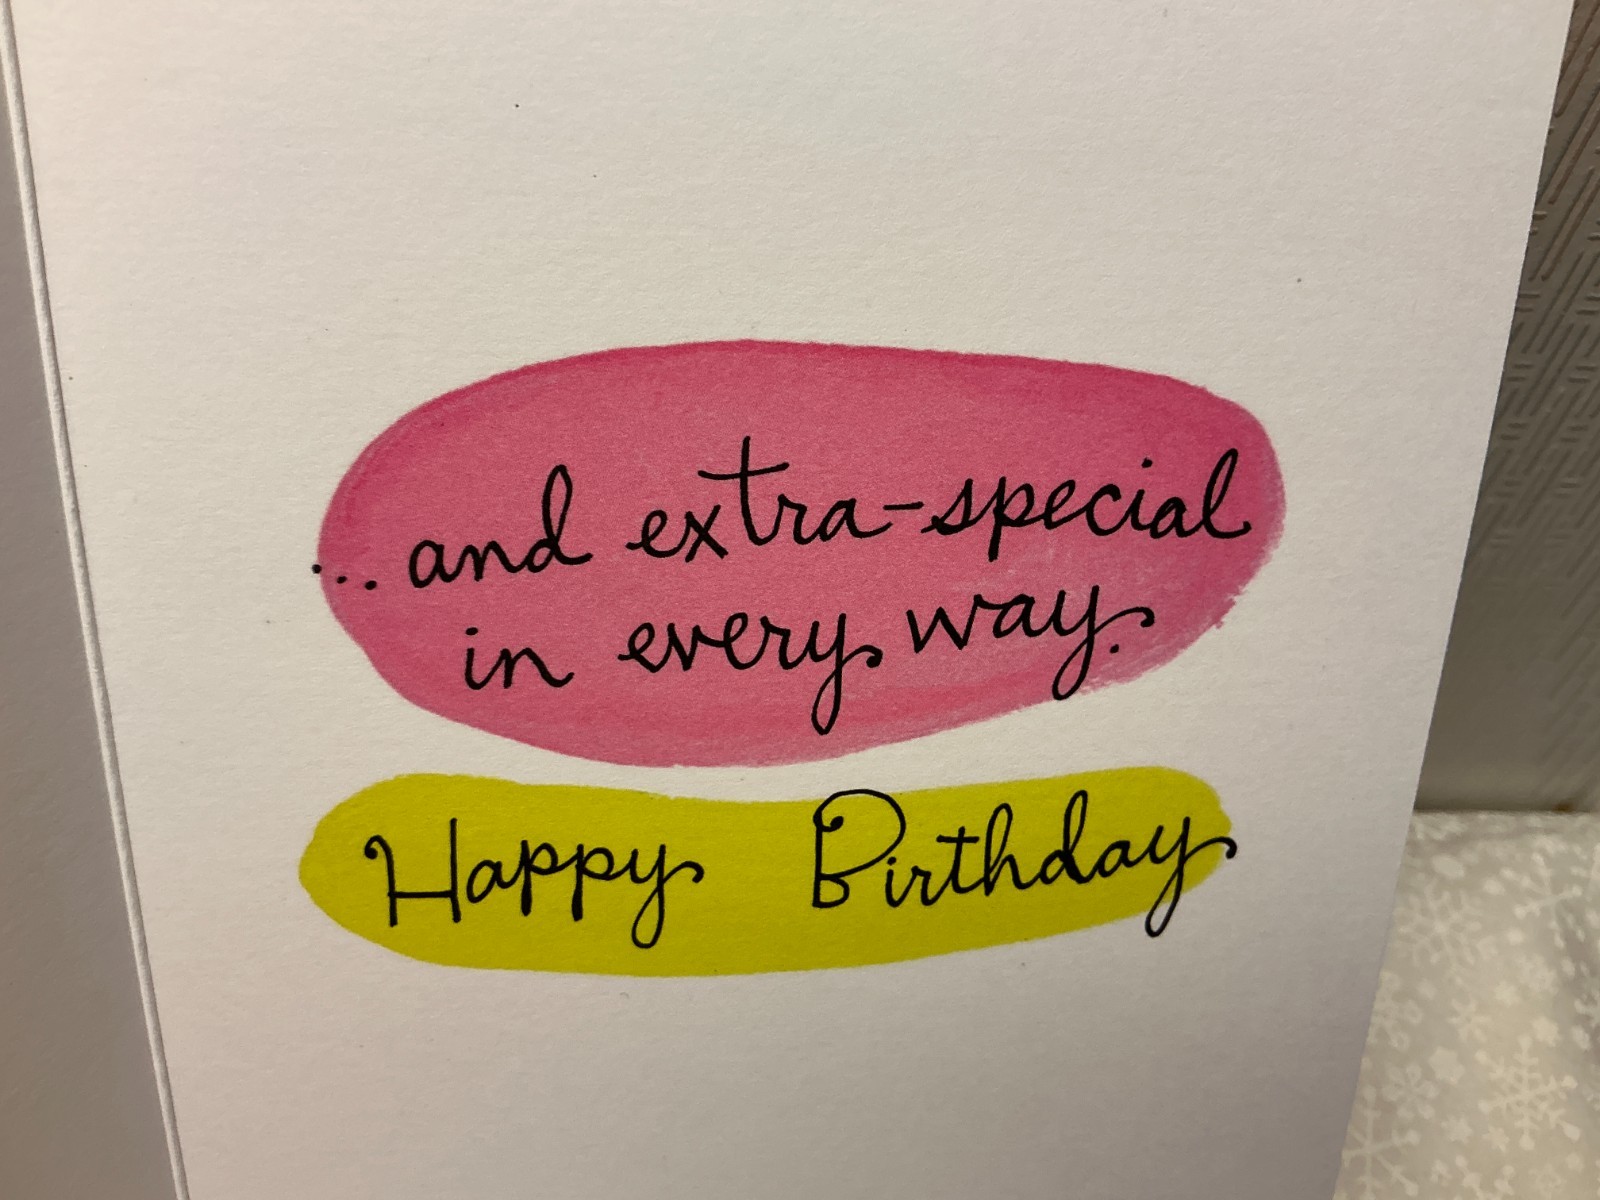 ... and extra-special
in every way.
Happy Birthday